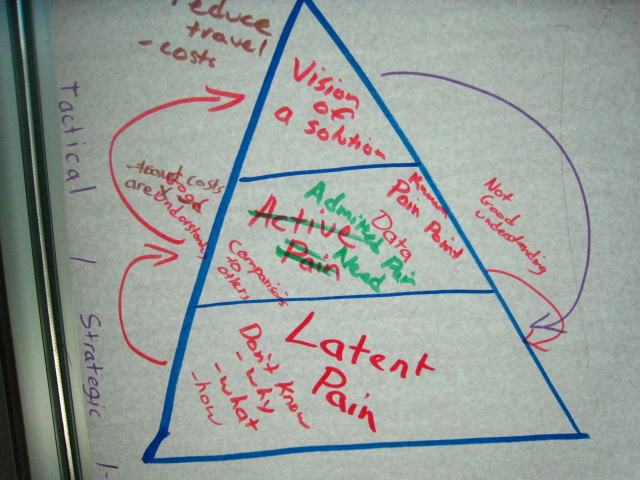 reduce
travel
- costs
Vision
of
a solution
Tactical
/
Strategic
/-
- travel costs
are
Good
Understanding
Admitted Pain
Need
Active
Pain
Data
Pain Point
Companies
to
others
Not
Good
understanding
Latent
Pain
Don't Know
- why
- what
- how